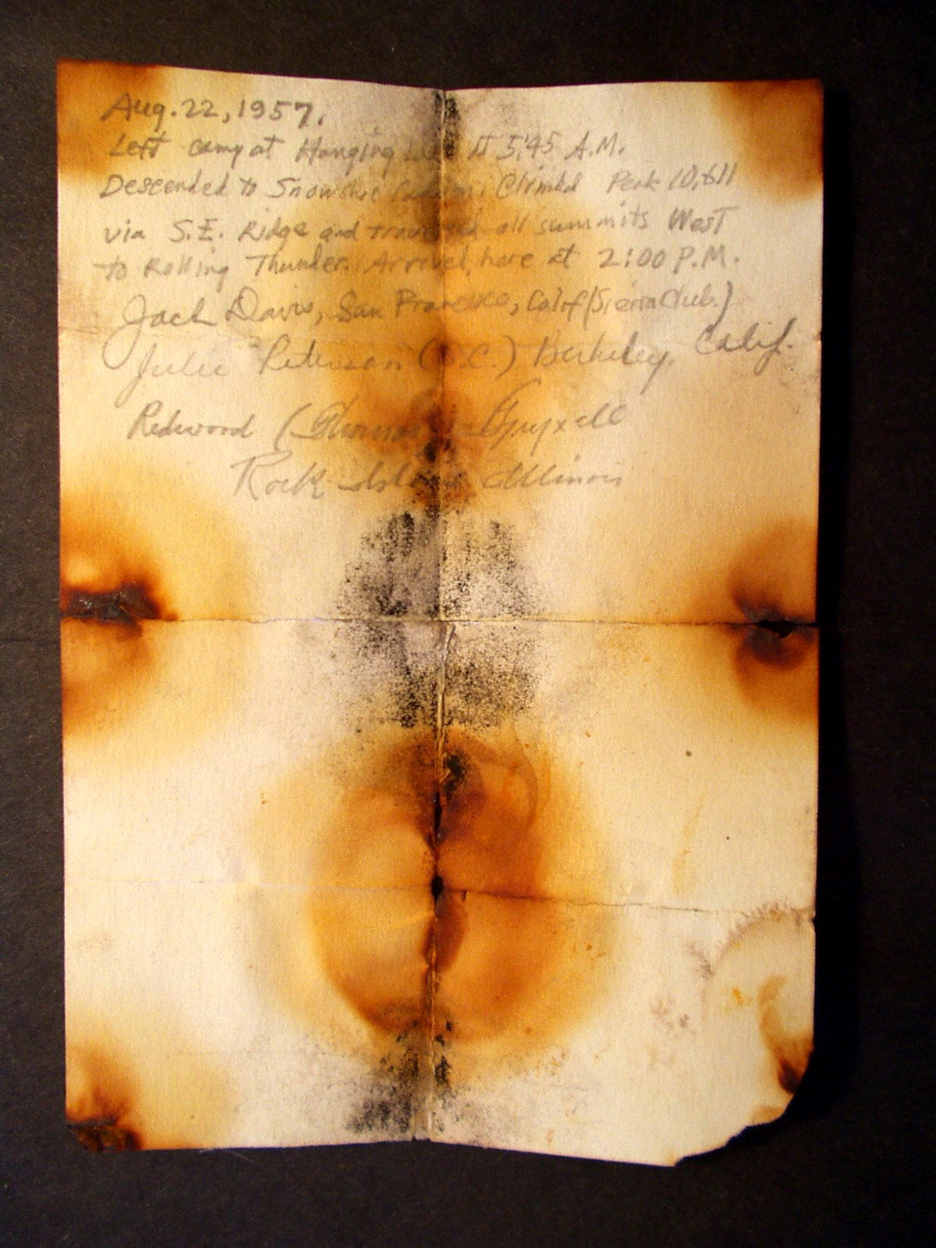 Aug. 22, 1957.
Left camp at Hanging at 5:45 A.M.
Descended to Snowshoe Canyon. Climbed Peak 10,611
via S.E. Ridge and traversed all summits West
to Rolling Thunder. Arrived here at 2:00 P.M.
Jack Davis, San Francisco, Calif (Sierra Club.)
Julie Peterson (S.C.) Berkeley, Calif.
Redwood (Thomas) Fryxell
Rock Island Illinois